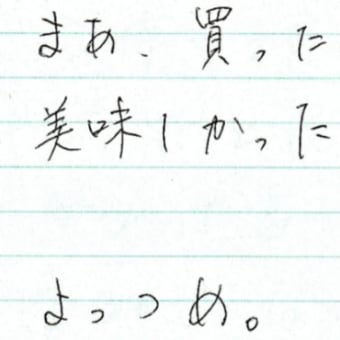 まあ、買った
美味しかった
よっつめ。